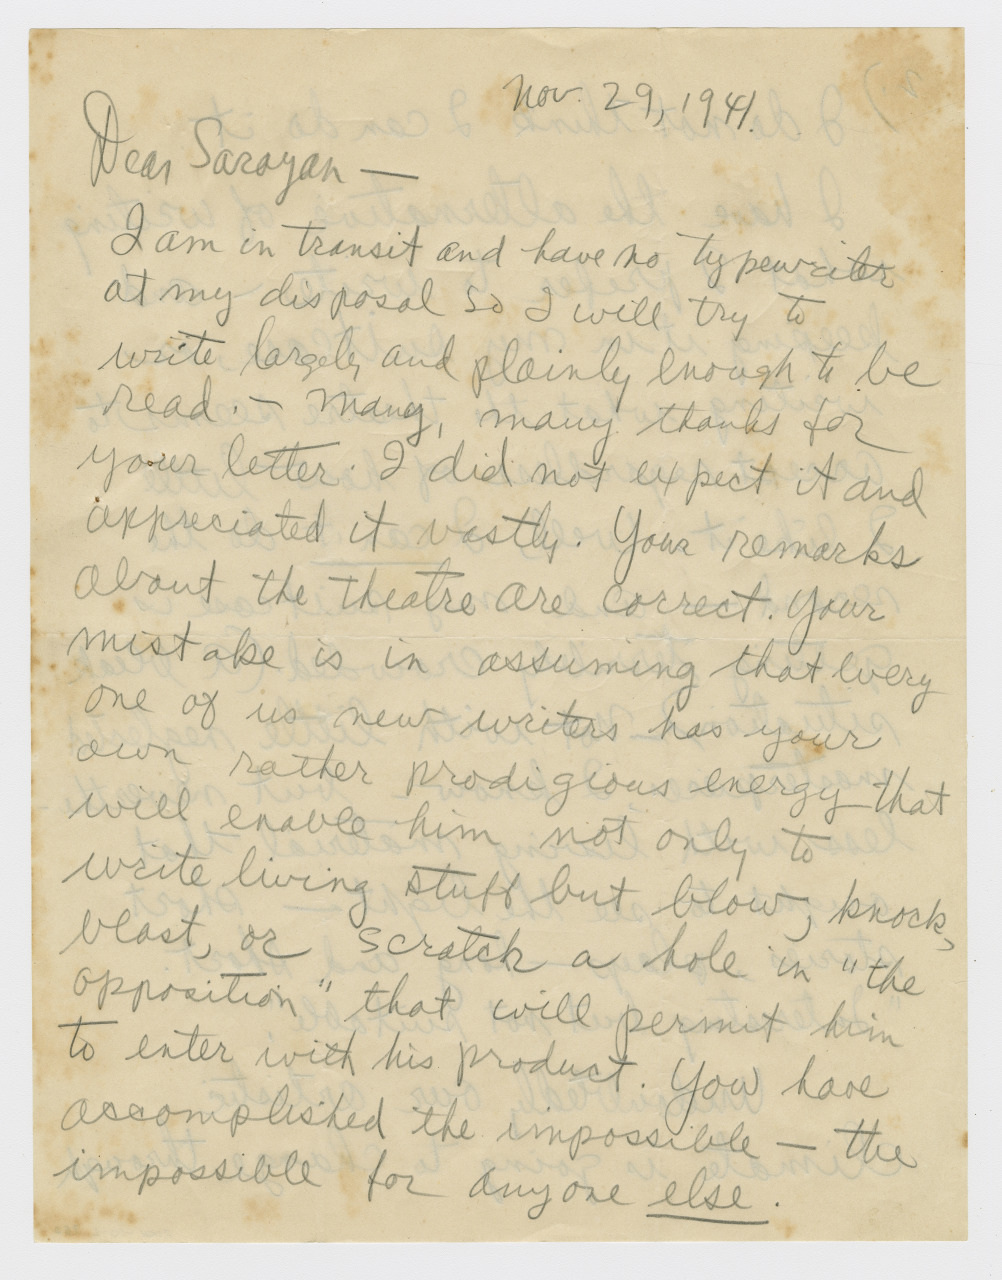 Nov. 29, 1941.
Dear Saroyan —
I am in transit and have no typewriter
at my disposal so I will try to
write largely and plainly enough to be
read. — Many, many thanks for
your letter. I did not expect it and
appreciated it vastly. Your remarks
about the theatre are correct. Your
mistake is in assuming that every
one of us new writers has your
own rather prodigious energy that
will enable him not only to
write living stuff but blow, knock,
blast, or scratch a hole in "the
opposition" that will permit him
to enter with his product. You have
accomplished the impossible — the
impossible for anyone else.